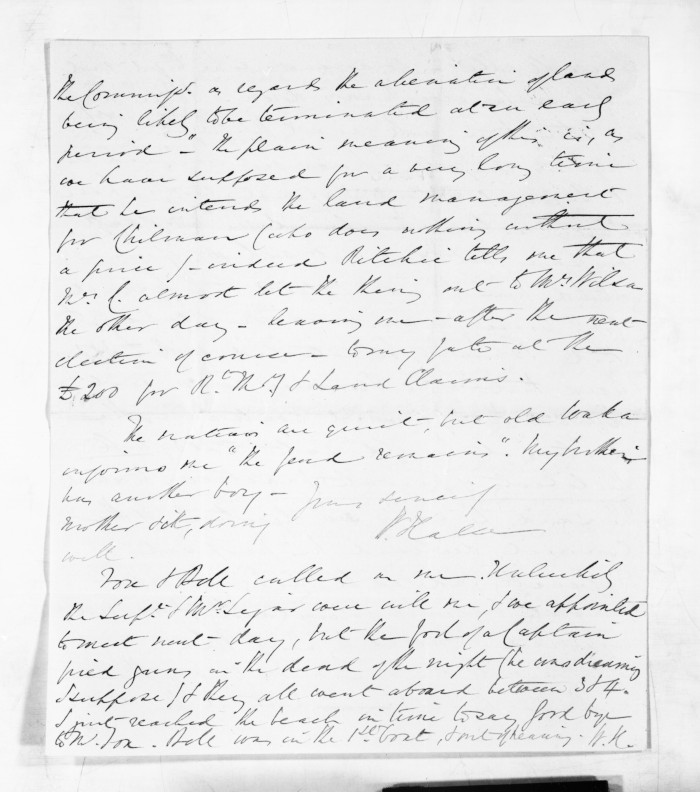 the Commissr. as regards the alienation of lands
being likely to be terminated at an early
period - " The plain meaning of this is, as
we have supposed for a very long time
that he intends the land management
for Chilman (who does nothing without
a price) - indeed Ritchie tells me that
Mr. C. almost let the thing out to Mr. Wilson
the other day - leaving me - after the next
election of course - to my fate at the
£200 for Rt. Mt. & Land Claims.
The natives are quiet, but old Waka
informs me "the feud remains". My brother
has another boy -
mother ditto, doing Yours sincerely
well. W Halse
Fox & Bell called on me. Unluckily
the Supt. & Mr. were with me, & we appointed
to meet next day, but the fool of a Captain
fired guns in the dead of the night (he was dreaming
I suppose) & they all went aboard between 3 & 4.
I just reached the beach in time to say good bye
to Mr. Fox. Bell was in the 1st boat, & out of hearing. W.H.